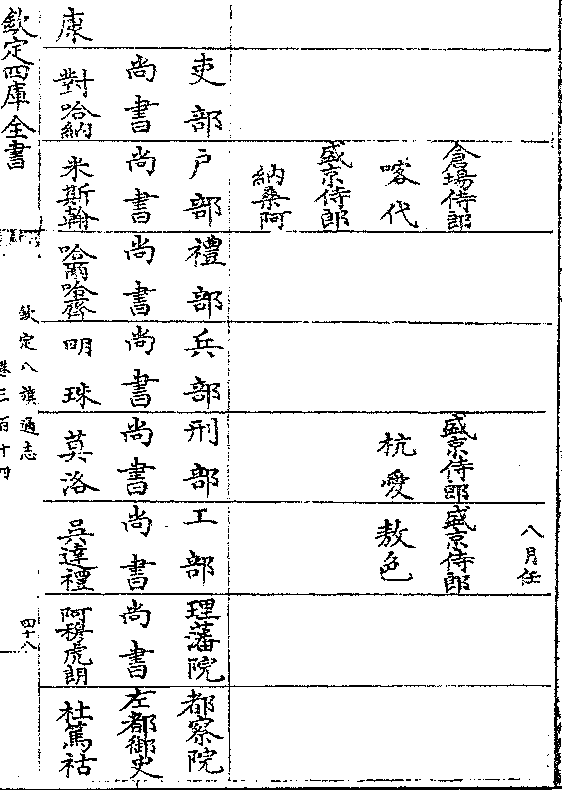 八月任
倉場侍郎 盛京侍郎 盛京侍郎
喀代 杭愛 敖色
盛京侍郎
納桑阿
吏部 户部 禮部 兵部 刑部 工部 理藩院 都察院
尚書 尚書 尚書 尚書 尚書 尚書 尚書 左都御史
康 對哈納 米斯翰 哈爾哈齊 明珠 莫洛 吳達禮 阿穆虎朗 杜篤祜
欽定四庫全書
欽定八旗通志
卷三百十四
四十八